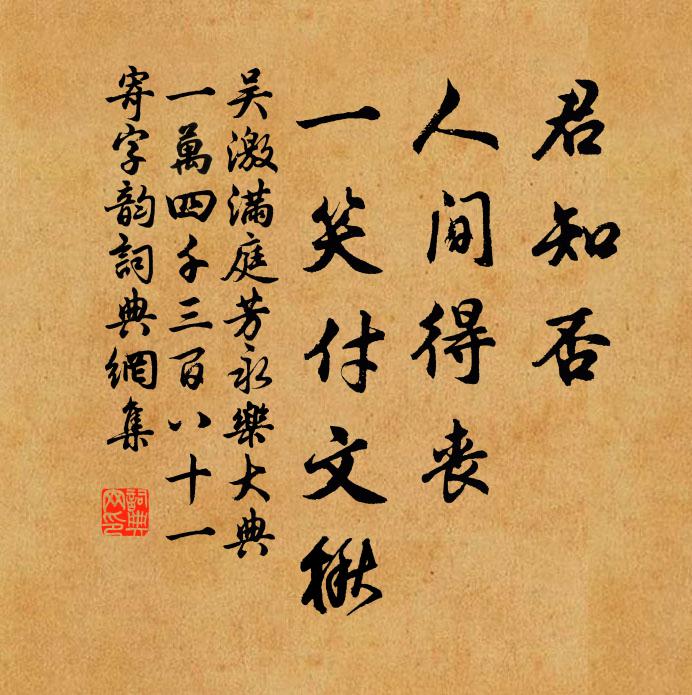 君知否
人間得丧
一笑付文楸
吴激满庭芳永樂大典
一萬四千三百八十一
寄字韵詞典網集
詞典网印